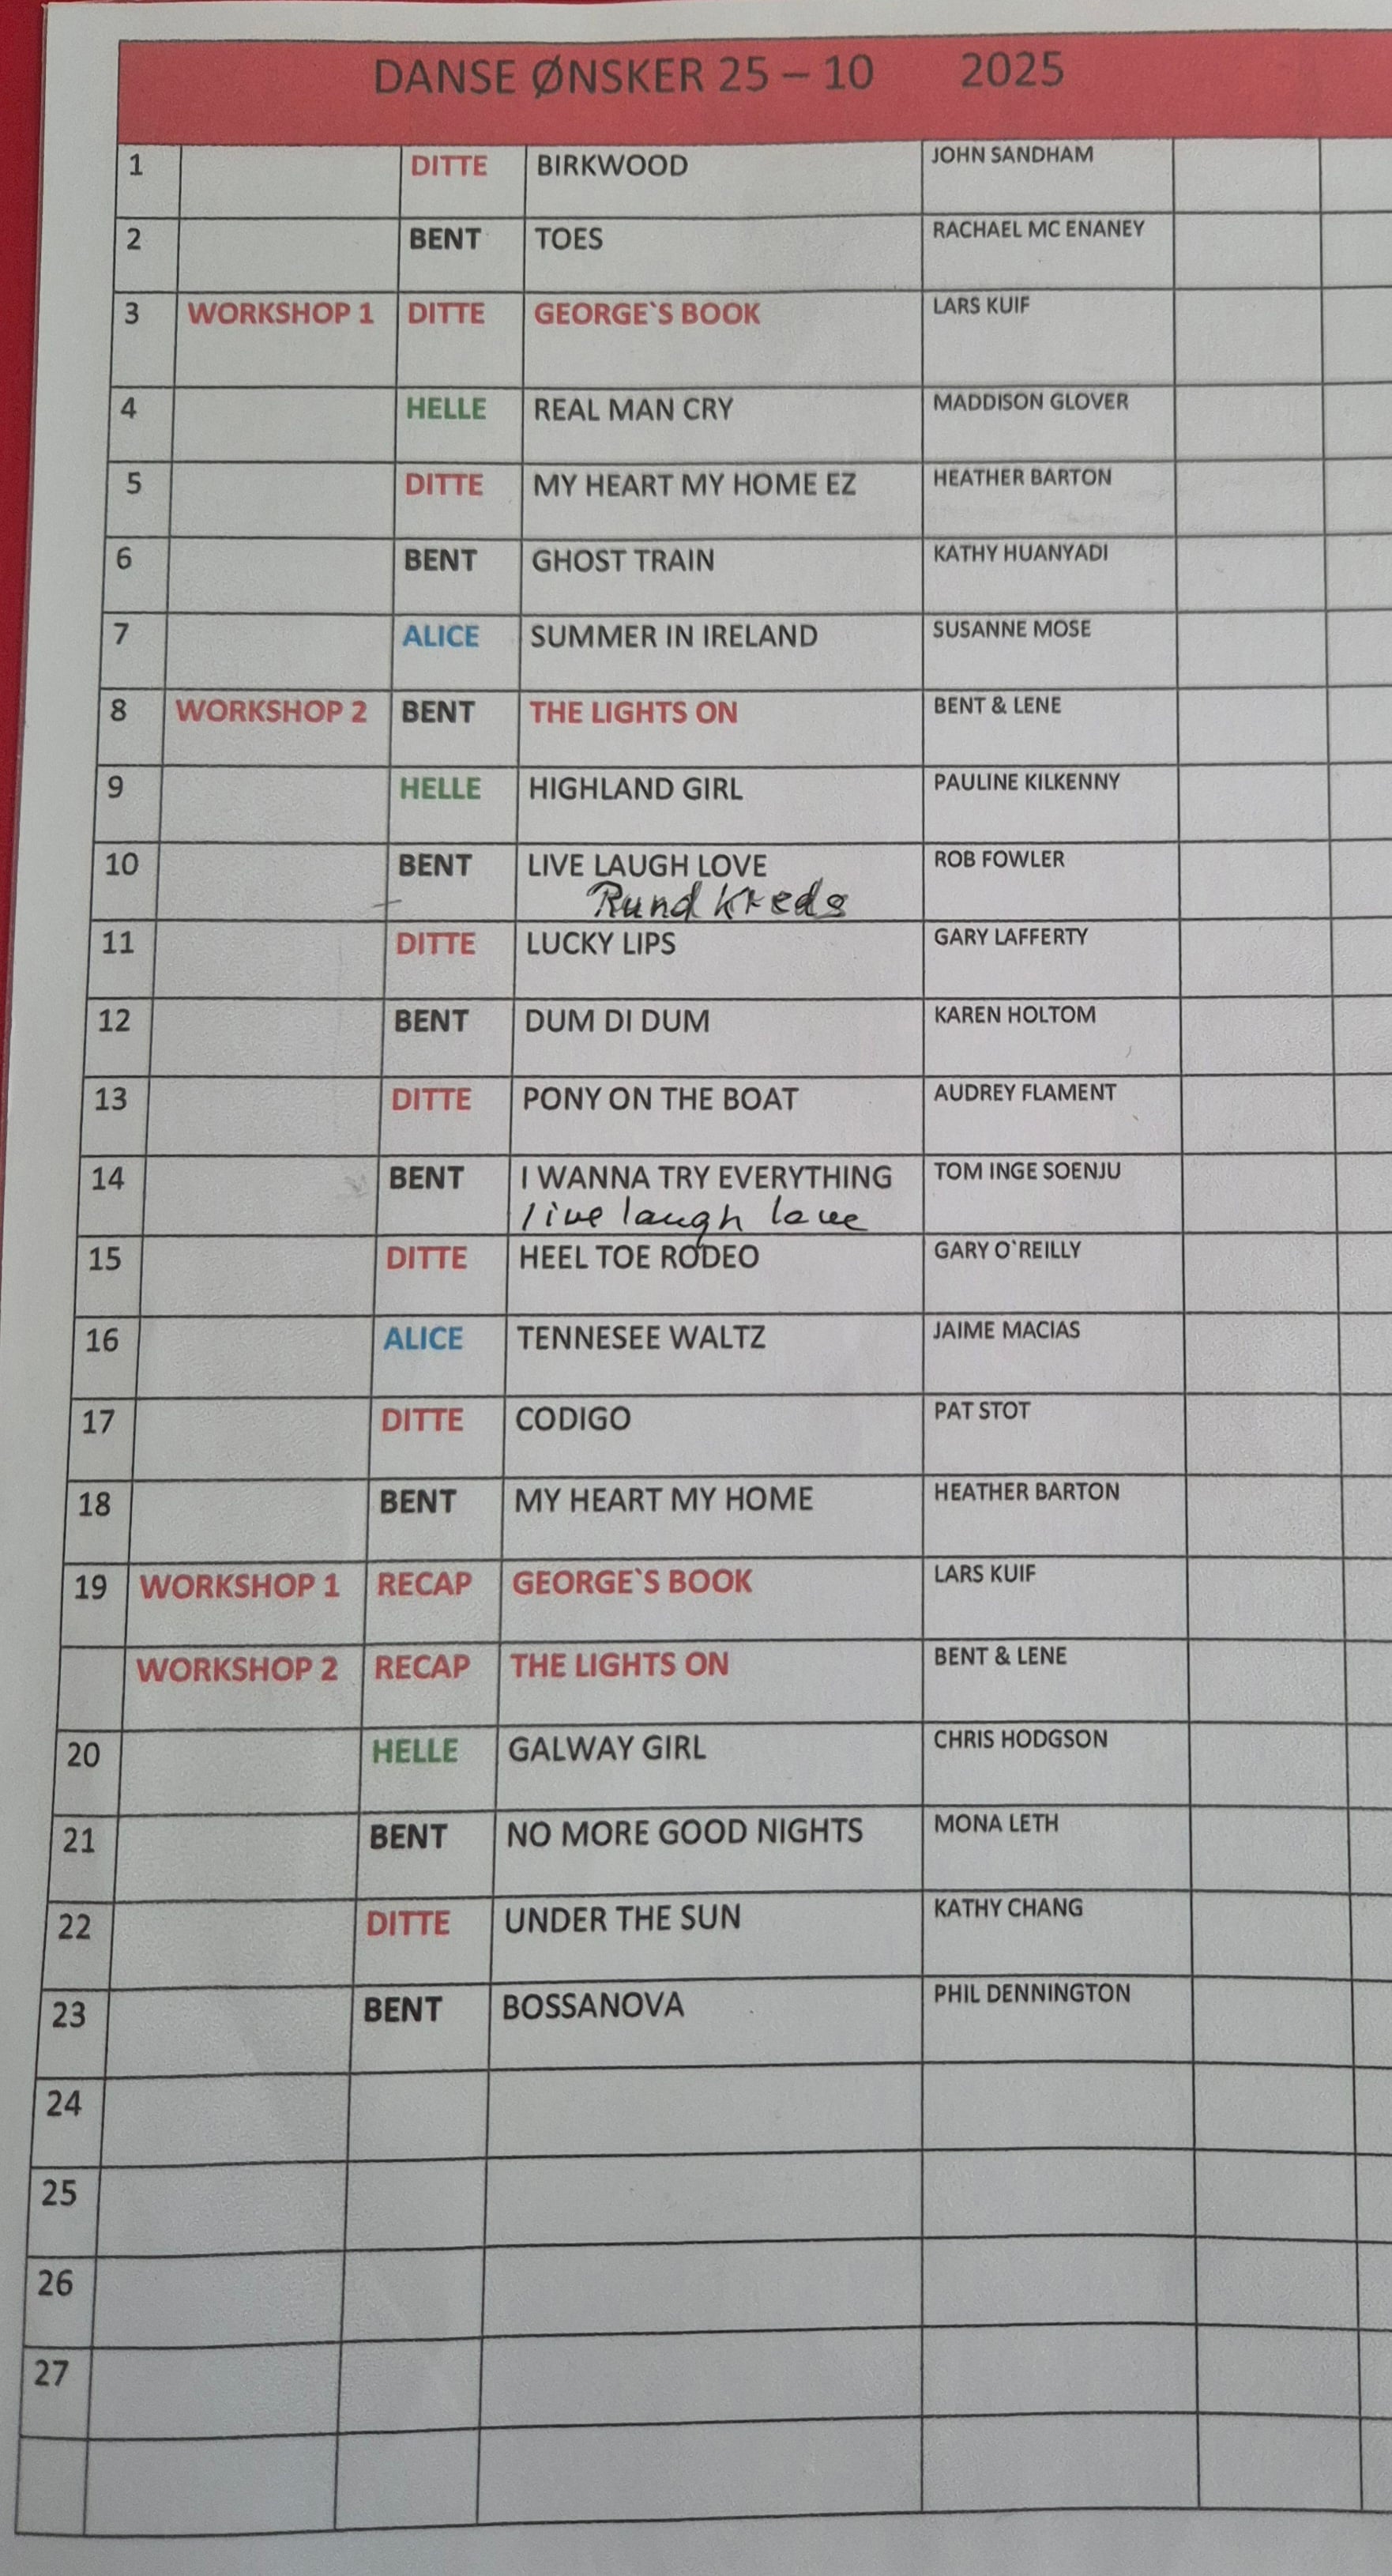 DANSE ØNSKER 25 – 10 2025
1 DITTE BIRKWOOD JOHN SANDHAM
2 BENT TOES RACHAEL MC ENANEY
3 WORKSHOP 1 DITTE GEORGE`S BOOK LARS KUIF
4 HELLE REAL MAN CRY MADDISON GLOVER
5 DITTE MY HEART MY HOME EZ HEATHER BARTON
6 BENT GHOST TRAIN KATHY HUANYADI
7 ALICE SUMMER IN IRELAND SUSANNE MOSE
8 WORKSHOP 2 BENT THE LIGHTS ON BENT & LENE
9 HELLE HIGHLAND GIRL PAULINE KILKENNY
10 BENT LIVE LAUGH LOVE ROB FOWLER
Rund kreds
11 DITTE LUCKY LIPS GARY LAFFERTY
12 BENT DUM DI DUM KAREN HOLTOM
13 DITTE PONY ON THE BOAT AUDREY FLAMENT
14 BENT I WANNA TRY EVERYTHING TOM INGE SOENJU
live laugh love
15 DITTE HEEL TOE RODEO GARY O`REILLY
16 ALICE TENNESEE WALTZ JAIME MACIAS
17 DITTE CODIGO PAT STOT
18 BENT MY HEART MY HOME HEATHER BARTON
19 WORKSHOP 1 RECAP GEORGE`S BOOK LARS KUIF
WORKSHOP 2 RECAP THE LIGHTS ON BENT & LENE
20 HELLE GALWAY GIRL CHRIS HODGSON
21 BENT NO MORE GOOD NIGHTS MONA LETH
22 DITTE UNDER THE SUN KATHY CHANG
23 BENT BOSSANOVA PHIL DENNINGTON
24
25
26
27